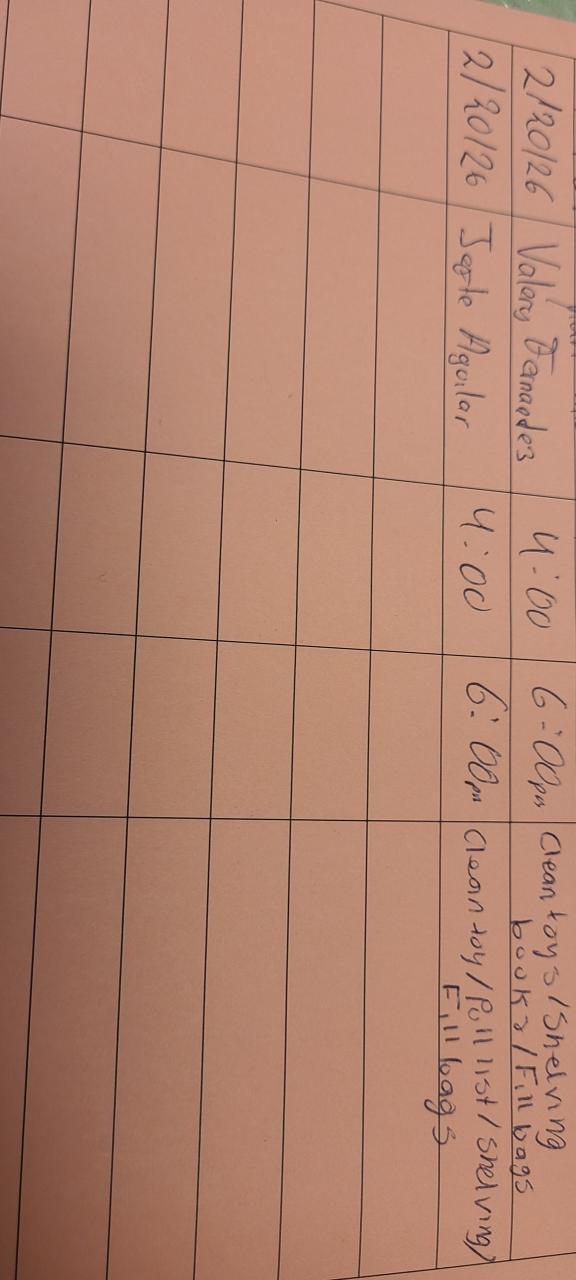 2/20/26 Valery 4:00 6:00pm Clean toys/Shelving
books/Fill bags
2/20/26 Aguilar 4:00 6:00pm Clean toy/Pull list/shelving/
Fill bags